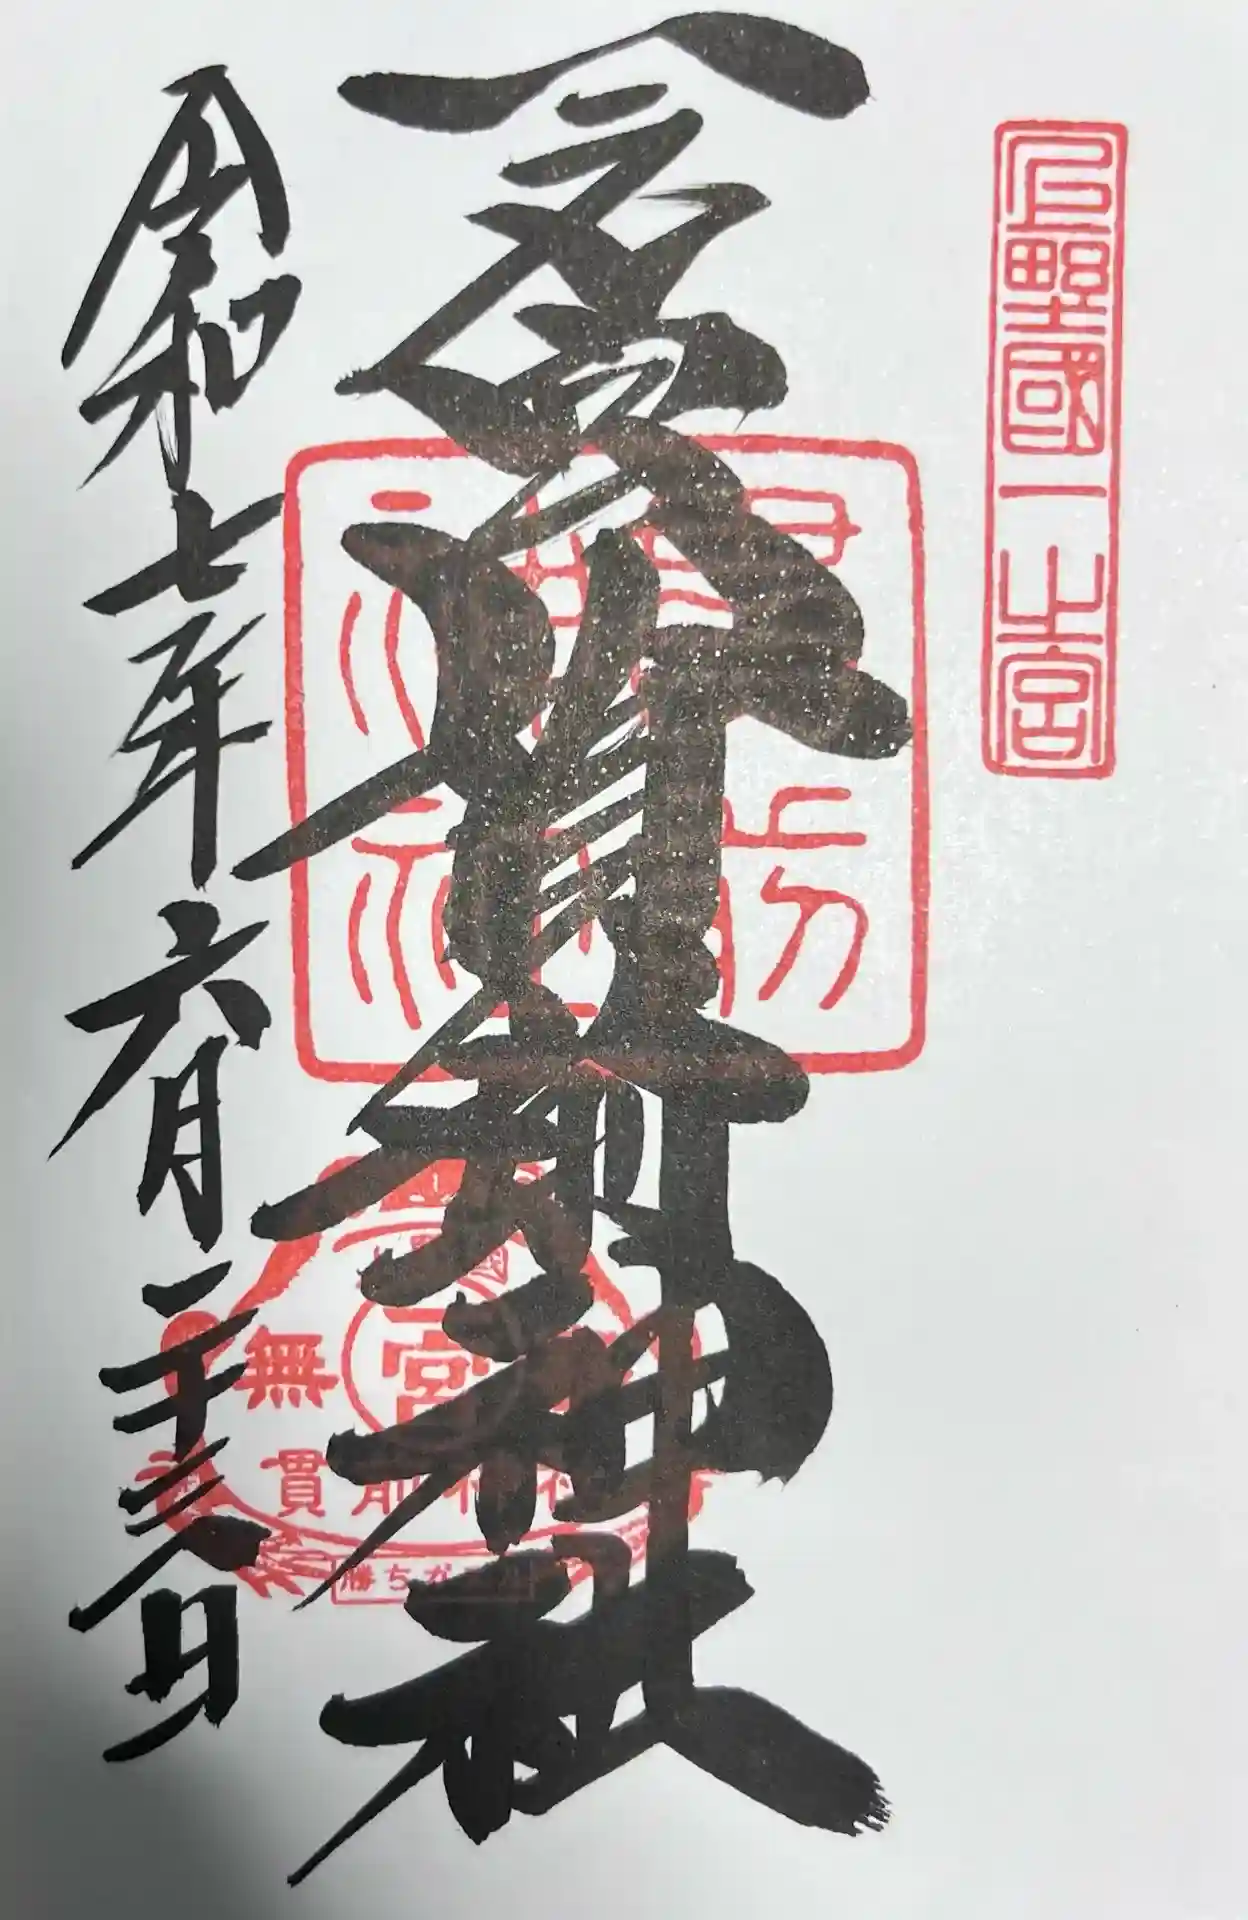 上野國一之宮
一之宮貫前神社
令和七年六月二十三日
無
一宮
貫前神社
勝ち